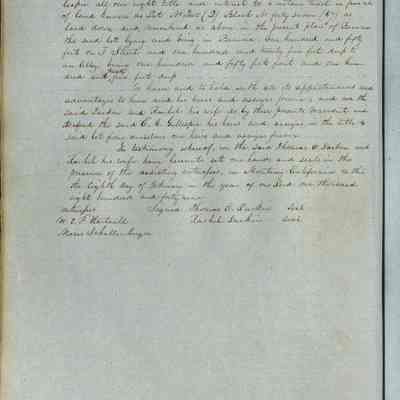 all our right title and interest to a certain tract or parcel
of land known as Lot No two (2) Block No forty seven (47) as
laid down and numbered as above in the present plan of Benicia
the said lot lying and being in Benicia one hundred and fifty
feet on J Street and one hundred and twenty five feet deep to
an Alley being one hundred and fifty feet front and one hun
dred and twenty five feet deep
To have and to hold with all its appurtenances and
advantages to him and his heirs and assigns forever, and we the
said Larkin and Rachel his wife do by these presents warrant and
defend the said C. V. Gillespie his heirs and assigns in the title to
said lot from ourselves our heirs and assigns forever
In testimony whereof, we the said Thomas O Larkin and
Rachel his wife have hereunto set our hands and seals in the
presence of the assisting witnesses, in Monterey California on this
the Eighth day of February in the year of our Lord one thousand
eight hundred and forty nine
witnesses Signed Thomas O. Larkin seal
W. E. P. Hartnell Rachel Larkin seal
Moses Schallenberger